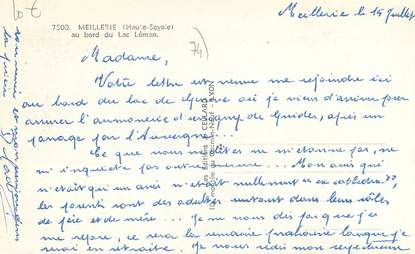 7500. MEILLERIE (Haute-Savoie)
au bord du Lac Léman.
Meillerie le 14 Juillet
74)
Madame,
Votre lettre est venue me rejoindre ici
au bord du lac de Genève où je viens d'arriver pour
assurer l'aumônerie d'un camp de Guides, après un
passage par l'Auvergne...
Ce que vous me dites ne m'étonne pas, ne
m'inquiète pas outre mesure... Mon avis qui
n'était qu'un avis n'était nullement "ex cathedra",
les parents sont des adultes entrant dans leurs rôles
de père et de mère... Je ne dis pas que j'ai
me repose, ce sera la semaine prochaine lorsque je
serai en retraite. Je vous redis mon respectueux
Les Editions CELLARD
LYON